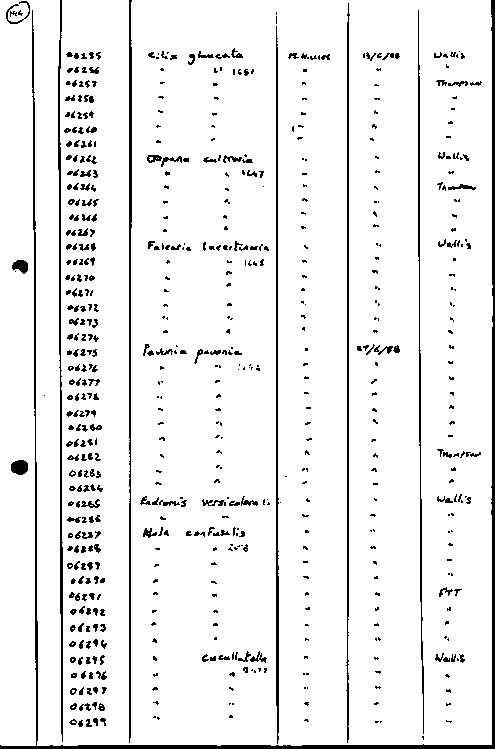 06255 Cilix glaucata 13/6/88 Wallis
06256 " " 1651 " " "
06257 " " " " Thompson
06258 " " " " "
06259 " " " " "
06260 " " " " "
06261 " " " " "
06262 Drepana cultraria " " Wallis
06263 " " 1647 " " "
06264 " " " " Thompson
06265 " " " " "
06266 " " " " "
06267 " " " " "
06268 Falcaria lacertinaria " " Wallis
06269 " " 1645 " " "
06270 " " " " "
06271 " " " " "
06272 " " " " "
06273 " " " " "
06274 " " " " "
06275 Pavonia pavonia " 27/6/88 "
06276 " " " " "
06277 " " " " "
06278 " " " " "
06279 " " " " "
06280 " " " " "
06281 " " " " "
06282 " " " " Thompson
06283 " " " " "
06284 " " " " "
06285 Endromis versicolora " " Wallis
06286 " " " " "
06287 Nola confusalis " " "
06288 " " 2078 " " "
06289 " " " " "
06290 " " " " "
06291 " " " "
06292 " " " " "
06293 " " " " "
06294 " " " " "
06295 " cucullatella " " Wallis
06296 " " 2077 " " "
06297 " " " " "
06298 " " " " "
06299 " " " " "